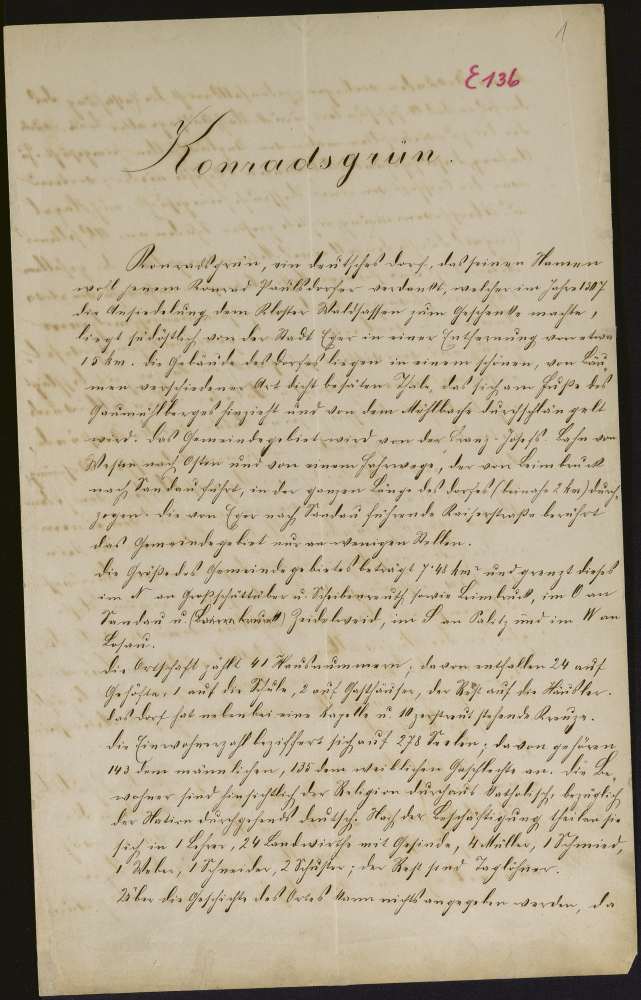 1
E 136
Konradsgrün.
Konradsgrün, ein deutsches Dorf, das seinen Namen
wohl jenem Konrad Paulsdorfer verdankt, welcher im Jahre 1307
die Ansiedelung dem Kloster Waldsassen zum Geschenke machte,
liegt südöstlich von der Stadt Eger in einer Entfernung von etwa
15 km. Die Gebäude des Dorfes liegen in einem schönen, von Bäu-
men verschiedener Art dicht besäten Thale, das sich am Fuße des
Gaumühlberges hinzieht und von dem Mühlbache durchschlängelt
wird. Das Gemeindegebiet wird von der Franz-Josefs-Bahn von
Westen nach Osten und von einem Fahrwege, der von Leimbruck
nach Sandau führt, in der ganzen Länge des Dorfes (beinahe 2 km) durch-
zogen. Die von Eger nach Sandau führende Kaiserstraße berührt
das Gemeindegebiet nur an wenigen Stellen.
Die Größe des Gemeindegebietes beträgt 7·48 km² und grenzt dieses
im N an Großschüttüber u. Scheibenreuth sowie Leimbruck, im O an
Sandau u. Zeidelweid, im S an Palitz und im W an
Losau.
Die Ortschaft zählt 41 Hausnummern; davon entfallen 24 auf
Gehöfte, 1 auf die Schule, 2 auf Gasthäuser, der Rest auf die Häusler.
Das Dorf hat nebenbei eine Kapelle u. 10 zerstreut stehende Kreuze.
Die Einwohnerzahl beziffert sich auf 278 Seelen; davon gehören
143 dem männlichen, 135 dem weiblichen Geschlechte an. Die Be-
wohner sind hinsichtlich der Religion durchaus katholisch, bezüglich
der Nation durchgehends deutsch. Nach der Beschäftigung theilen sie
sich in 1 Lehrer, 24 Landwirthe mit Gesinde, 4 Müller, 1 Schmied,
1 Weber, 1 Schneider, 2 Schuster; der Rest sind Taglöhner.
Über die Geschichte des Ortes kann nichts angegeben werden, da